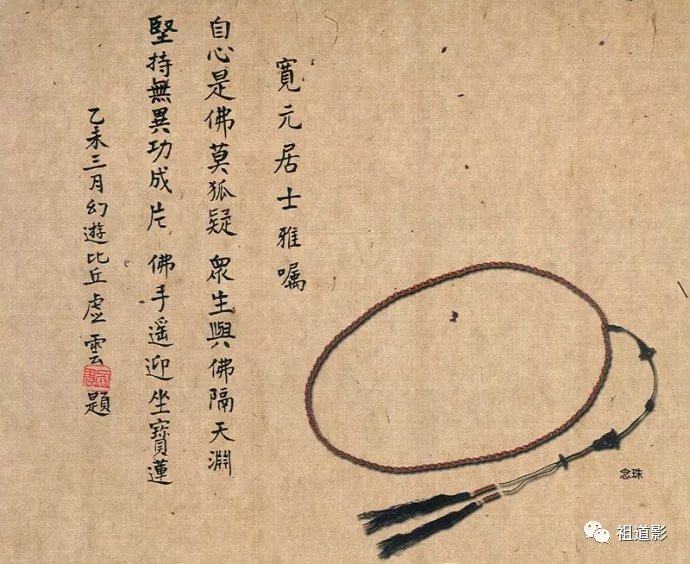 寬元居士雅嘱
自心是佛莫狐疑 衆生與佛隔天淵
堅持無異功成片 佛手遥迎坐寶蓮
乙未三月幻遊比丘虚雲題
念珠
祖道影